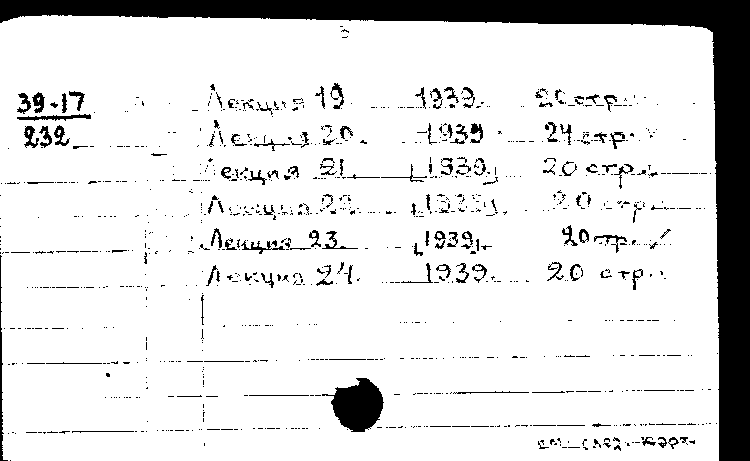 3
39-17
232
Лекция 19 1939. 20 стр.
Лекция 20. 1939. 24 стр. v
Лекция 21. [1939.] 20 стр.
Лекция 22. [1939] 20 стр.
Лекция 23. [1939]. 20 стр. ✓
Лекция 24. 1939. 20 стр.
см. след. карт.